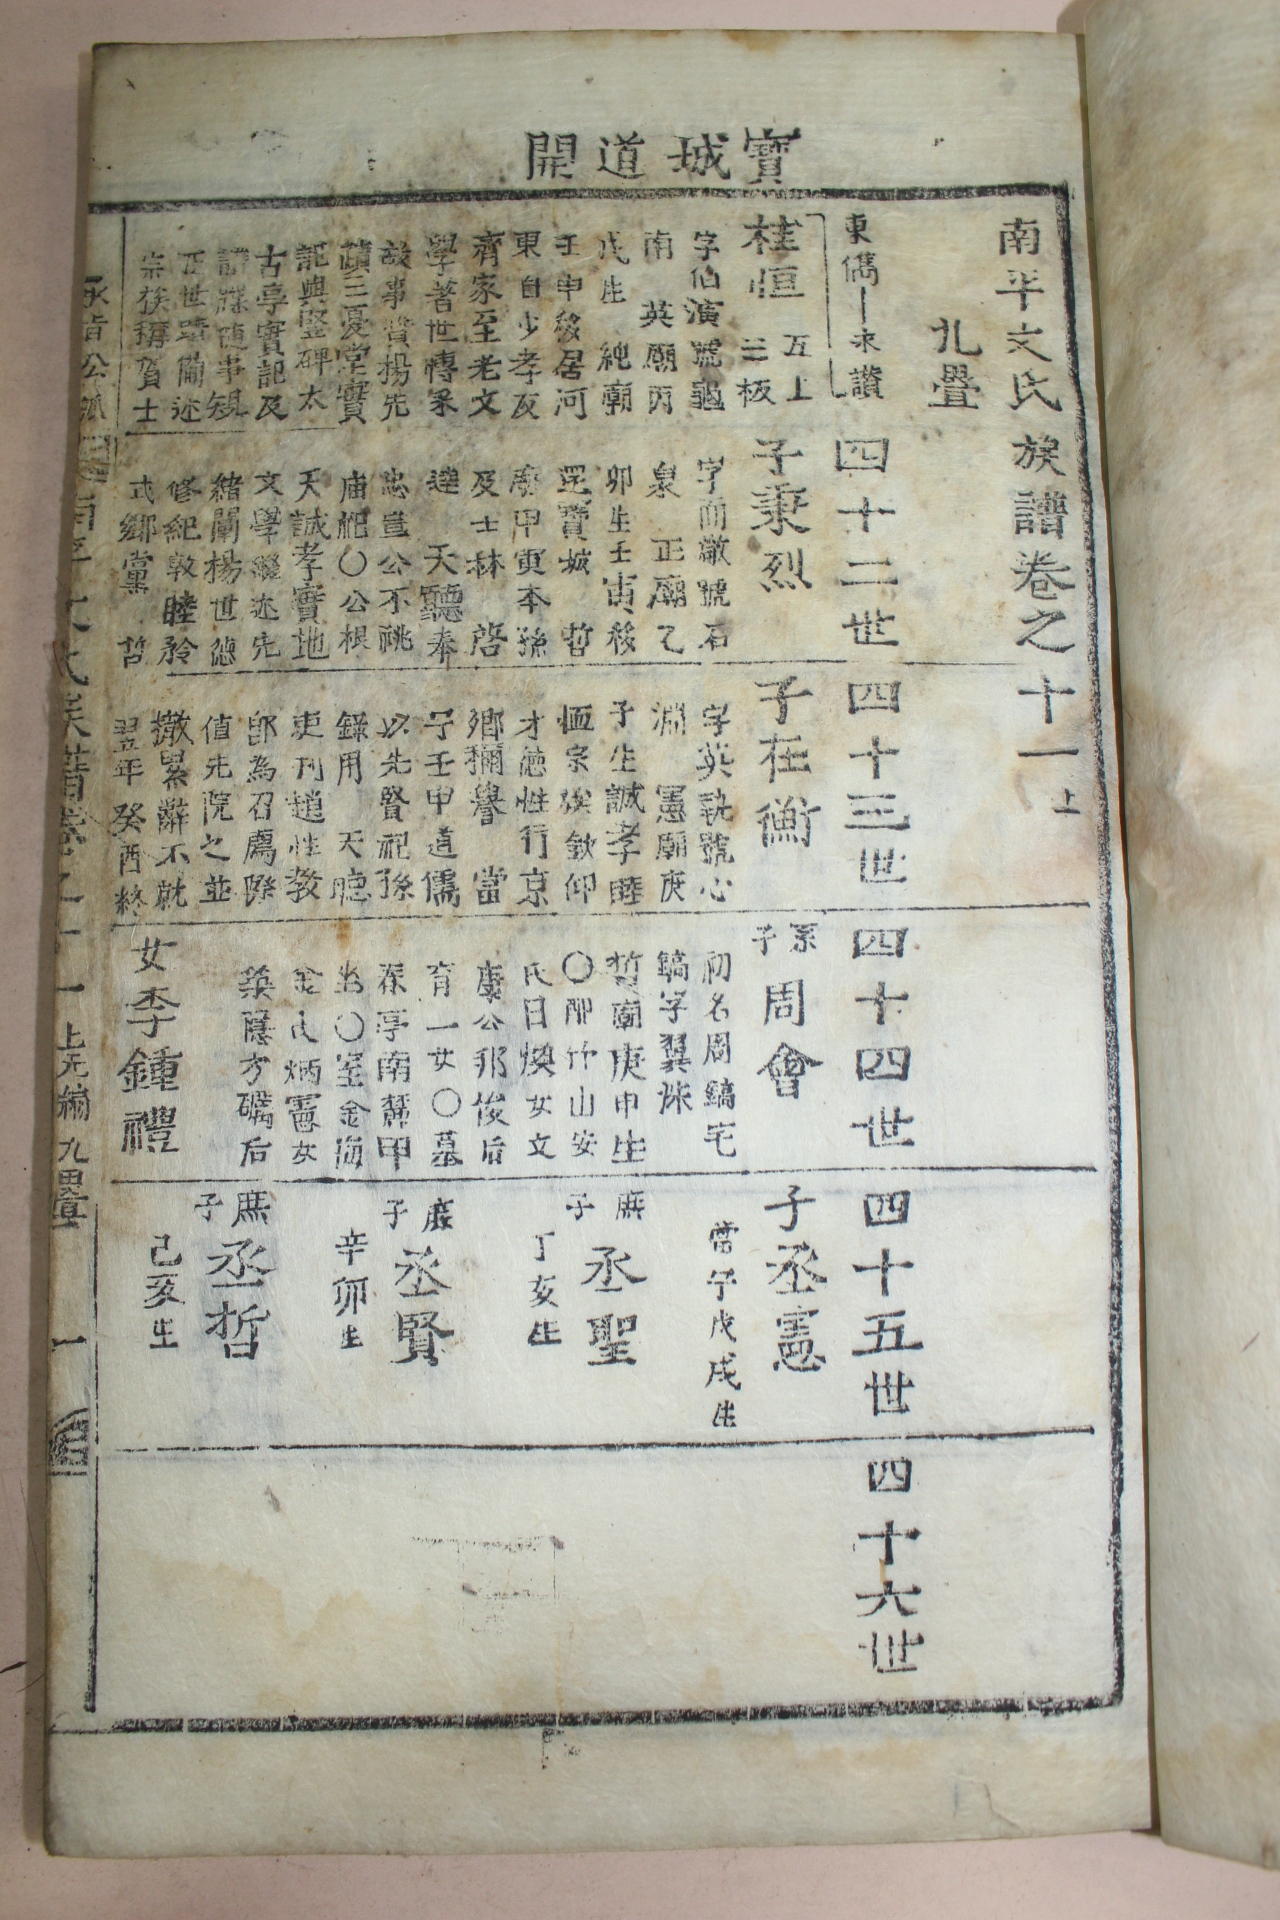 寶城道開
南平文氏族譜卷之十一上
九疊
東儁—永讚
四十二世
四十三世
四十四世
四十五世
四十六世
桂恒 五上 三板
字伯演號龜
南 英廟丙
戌生 純廟
壬申移居河
東自少孝友
齊家至老文
學著世傳家
故事贊揚先
蹟三憂堂實
記與竪碑太
古亭實記及
譜牒隨事規
正世蹟備述
宗族稱賀士
子秉烈
字而敬號石
泉 正廟乙
卯生壬寅移
居寶城 哲
廟甲寅本孫
及士林 啓
達 天聽奉
忠宣公不祧
廟祀〇公根
天誠孝實地
文學繼述先
緒闡揚世德
修紀敦睦矜
式鄉黨 哲
子在衡
字英執號心
淵 憲廟庚
子生誠孝睦
恤宗族欽仰
才德性行京
鄉稱譽 當
子壬申道儒
以先賢祀孫
錄用 天聰
吏刊趙性教
郎為召薦際
值先院之並
撤累辭不就
翌年癸酉終
系子周會
初名周鎬宅
鎬字翼洙
哲廟庚申生
〇配竹山安
氏日煥女文
康公邦俊后
育一女〇墓
春亭南麓甲
坐〇室金海
金氏炳憲女
築隱方礪后
女李鍾禮
子丞憲
當宁戊戌生
庶子丞聖
丁亥生
庶子丞賢
辛卯生
庶子丞哲
己亥生
南平文氏族譜卷之十一上元編 九疊 一